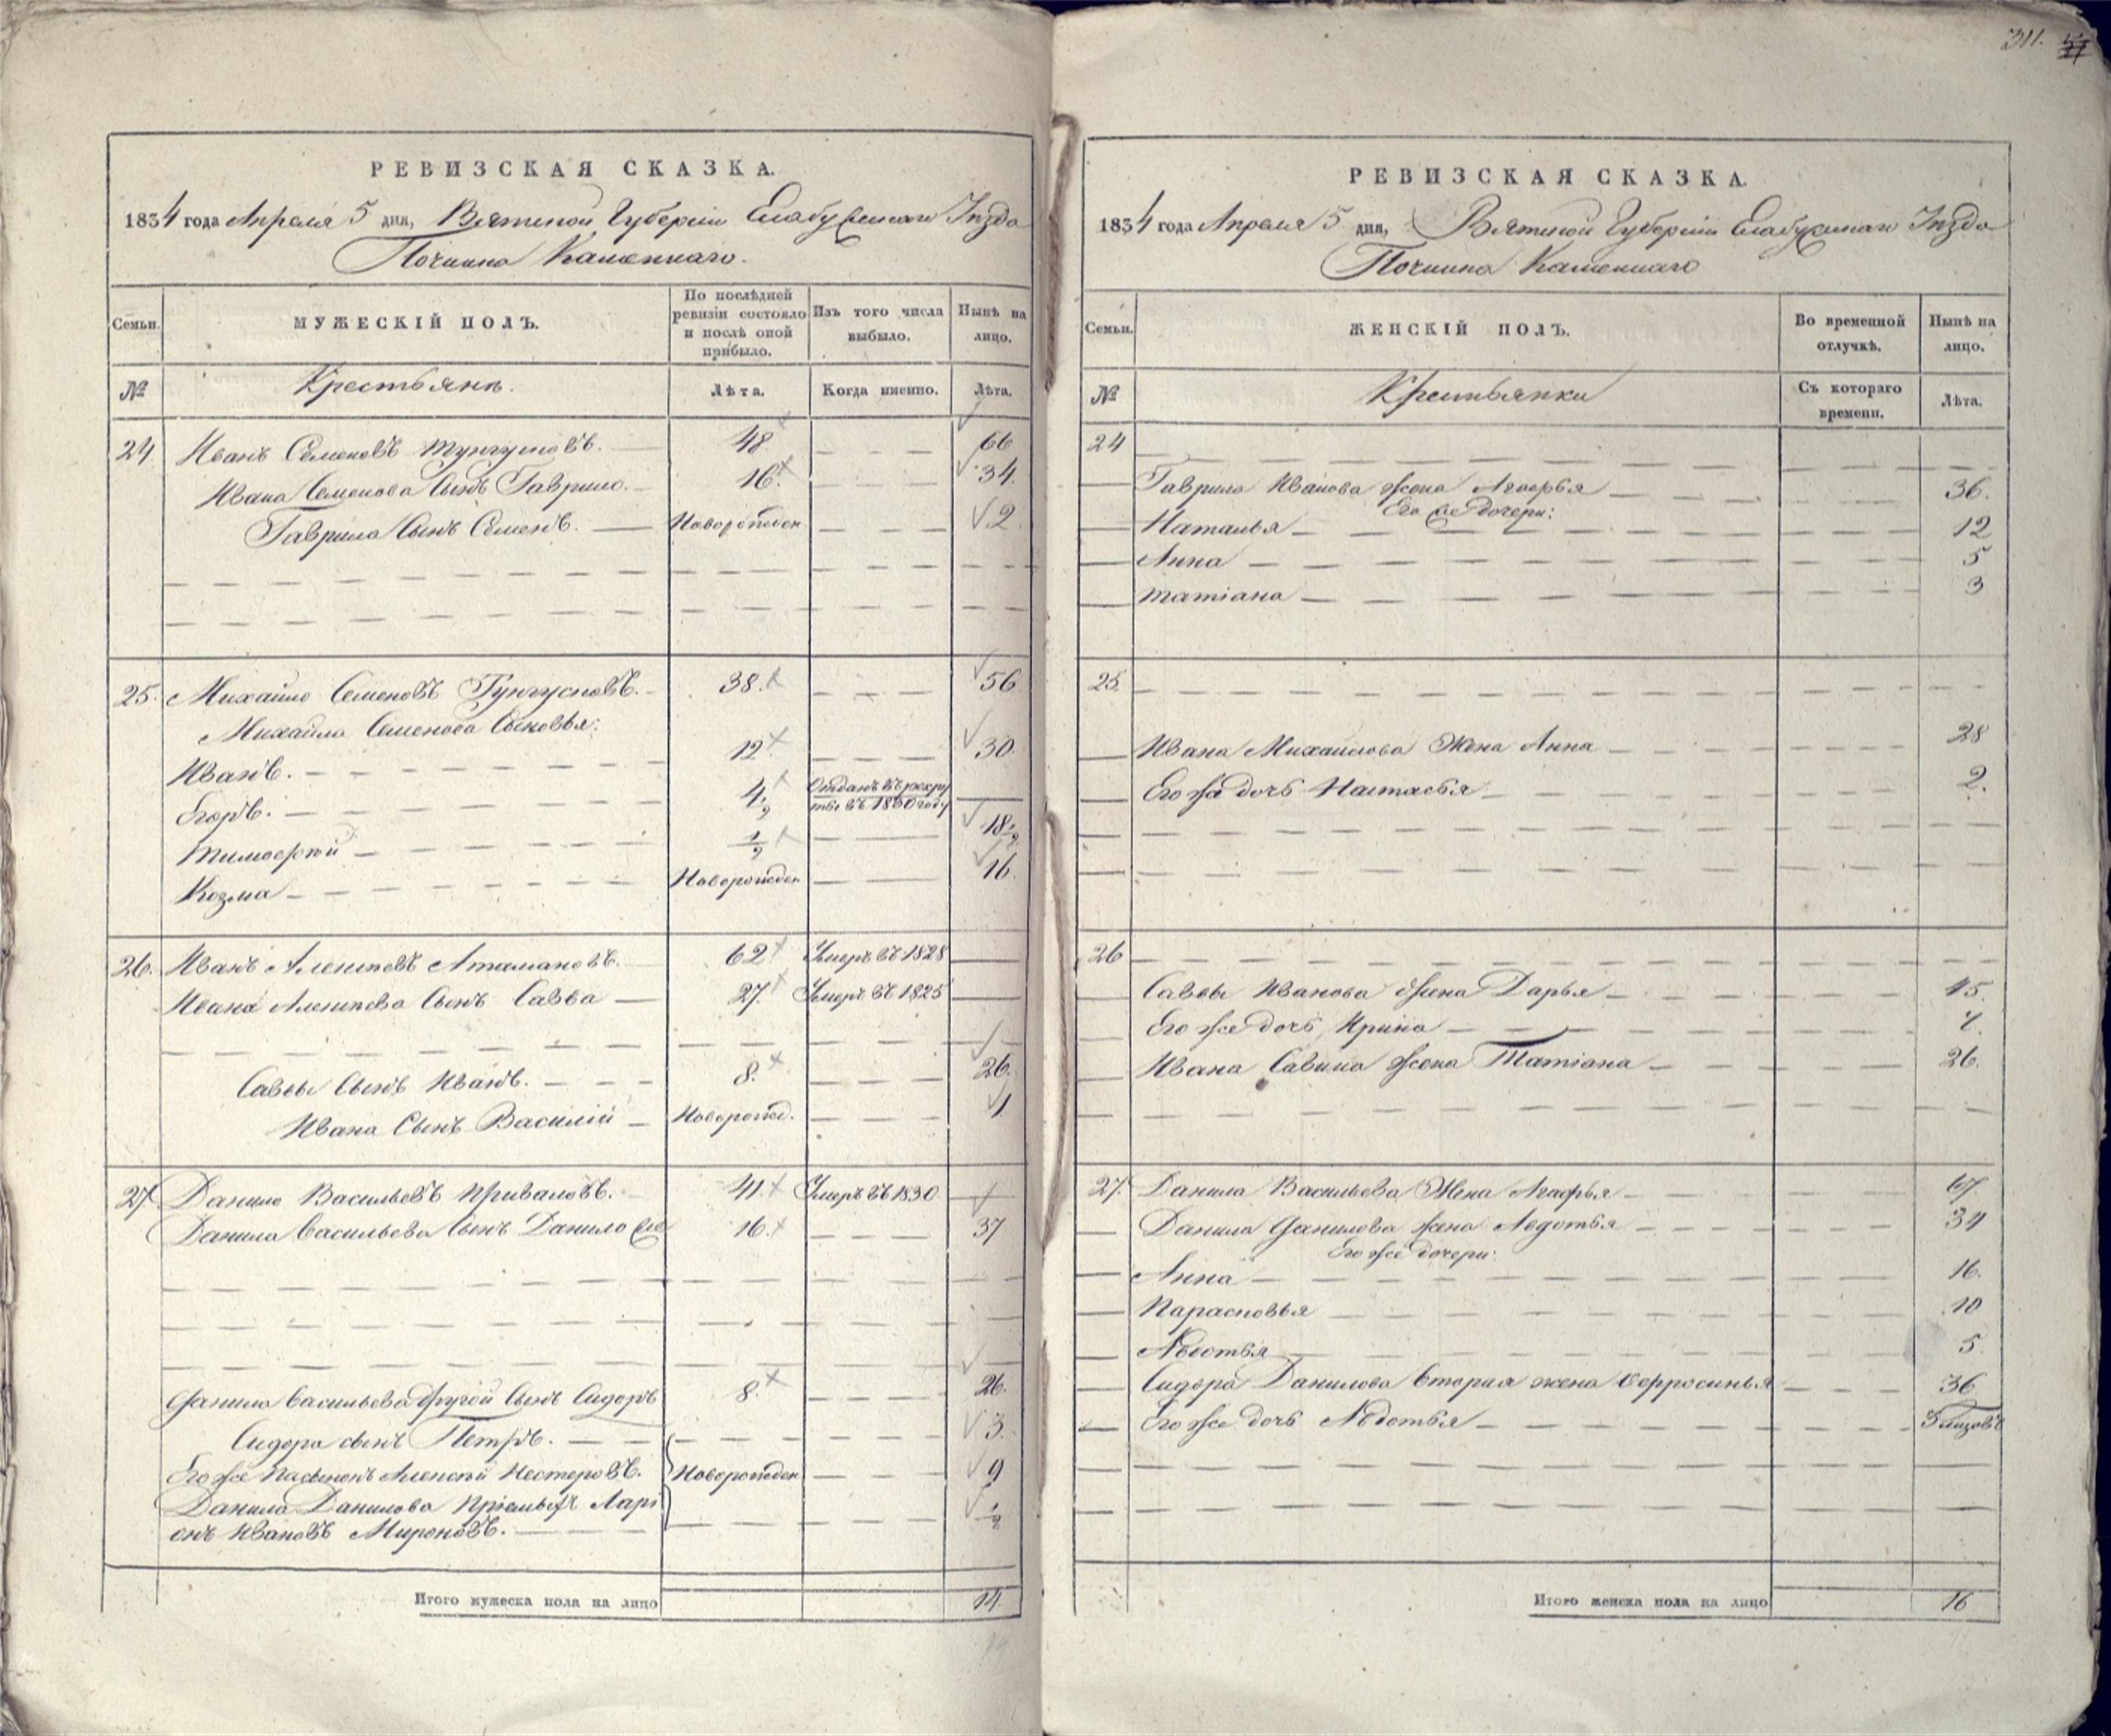 311.
РЕВИЗСКАЯ СКАЗКА.
1834 года Апреля 5 дня, Вятской Губерніи Елабужскаго Уѣзда
Починка Каменнаго.
Семьи.
МУЖЕСКІЙ ПОЛЪ.
По послѣдней ревизіи состояло и послѣ оной прибыло.
Изъ того числа выбыло.
Нынѣ на лицо.
№
Крестьяне.
Лѣта.
Когда именно.
Лѣта.
24 Иванъ Семеновъ Тунгусковъ. 48 66
Ивана Семенова Сынъ Гаврило. 16. 34.
Гаврила Сынъ Семенъ. Новорожден 2
25. Михайло Семеновъ Тунгусковъ. 38. 56
Михайла Семенова Сыновья:
Иванъ. 12 30.
Егоръ. 4 1/2 Отданъ въ рекру
ты въ 1830 году
Тимофей 1/2 18 1/2
Козма Новорожден 16.
26. Иванъ Алексѣевъ Атамановъ. 62 Умеръ въ 1828
Ивана Алексѣева Сынъ Савва 27. Умеръ въ 1825
Саввы Сынъ Иванъ. 8. 26.
Ивана Сынъ Василій Новорожд. 1
27 Данило Васильевъ Приваловъ. 41. Умеръ въ 1830
Данила Васильева Сынъ Данило 16. 37
Данила Васильева другой Сынъ Сидоръ 8. 26.
Сидора сынъ Петръ. 3.
Его же Пасынокъ Алексѣй Нестеровъ. Новорожден 9
Данила Данилова Пріемышъ Ларі
онъ Ивановъ Мироновъ. 1/2
Итого мужеска пола на лицо 14
РЕВИЗСКАЯ СКАЗКА.
1834 года Апреля 5 дня, Вятской Губерніи Елабужскаго Уѣзда
Починка Каменнаго
Семьи.
ЖЕНСКІЙ ПОЛЪ.
Во временной отлучкѣ.
Нынѣ на лицо.
№
Крестьянки
Съ котораго времени.
Лѣта.
24
Гаврила Иванова жена Агафья 36.
Его же дочери:
Наталья 12
Анна 5
Татіана 3
25.
Ивана Михаилова Жена Анна 28
Его же дочь Настасья 2.
26
Саввы Иванова Жена Дарья 45.
Его же дочь Ирина
Ивана Савина жена Татіана 26.
27. Данила Васильева Жена Агафья 67.
Данила Данилова жена Авдотья 34
Его же дочери:
Анна 16.
Парасковья 10
Авдотья 5.
Сидора Данилова вторая жена Ефросинья 36
Его же дочь Авдотья
Итого женска пола на лицо 16